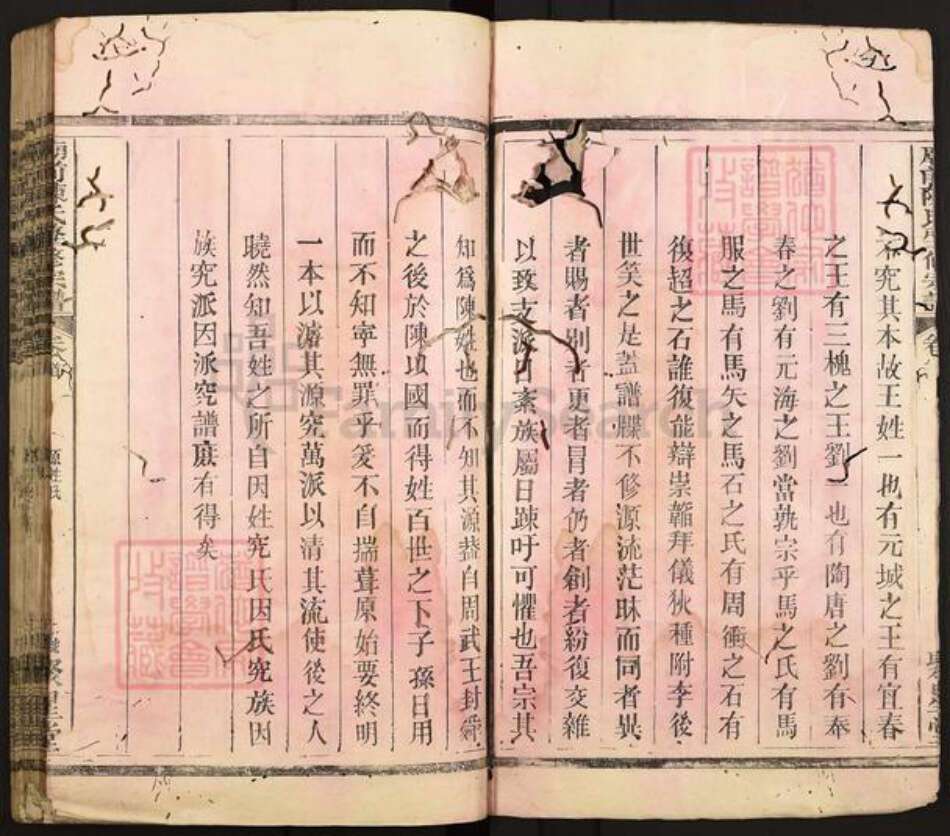 不究其本故王姓一也有元城之王有宜春
之王有三槐之王劉一也有陶唐之劉有奉
春之劉有元海之劉當孰宗乎馬之氏有馬
服之馬有馬矢之馬石之氏有周衞之石有
後超之石誰復能辯崇韜拜儀狄種附李後
世笑之是蓋譜牒不修源流茫昧而同者異
者賜者別者更者冒者仍者創者紛復交雜
以致支派日紊族屬日踈吁可懼也吾宗其
知爲陳姓也而不知其源葢自周武王封舜
之後於陳以國而得姓百世之下子孫日用
而不知寧無罪乎爰不自揣葺原始要終明
一本以濬其源究萬派以清其流使後之人
曉然知吾姓之所自因姓究氏因氏究族因
族究派因派究譜庶有得矣
源姓氏
聚星堂
FamilySearch